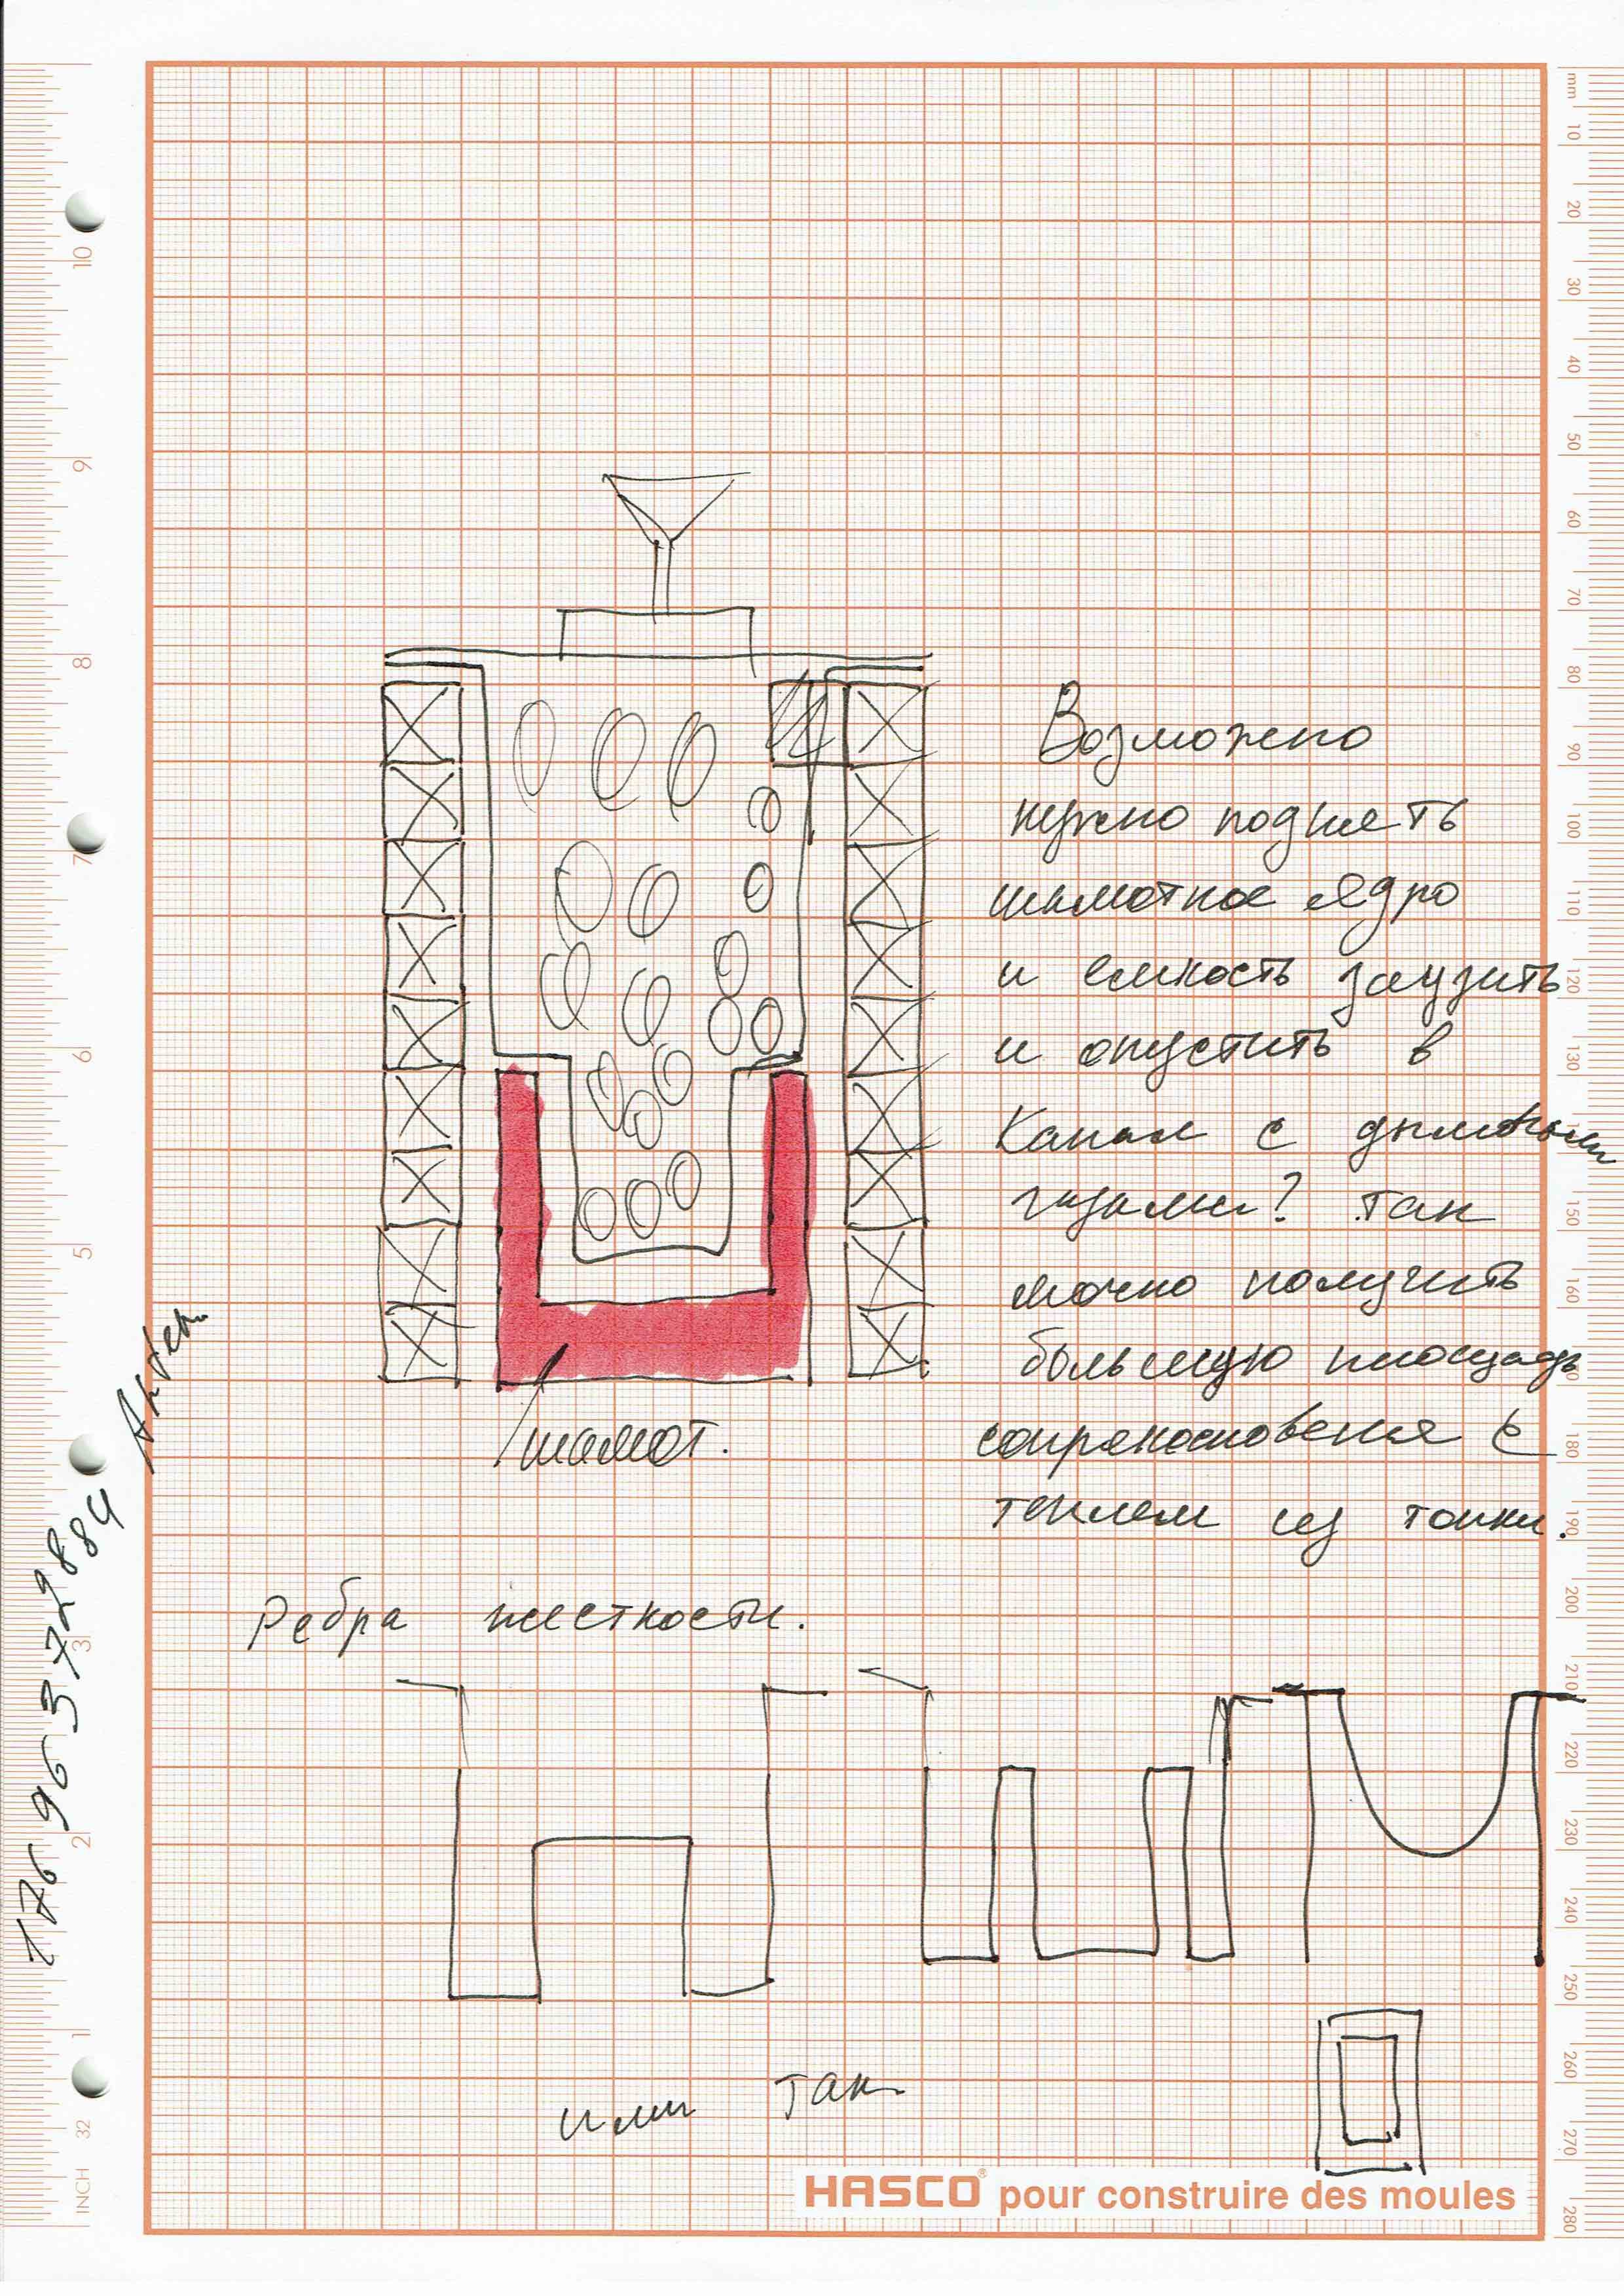 Возможно
нужно поднять
шамотное ядро
и емкость заузить
и опустить в
канал с дымовыми
газами? Так
можно получить
большую площадь
соприкосновения с
теплом из топки.
шамот.
Ребра жесткости.
или так
176 96 3 72 9 8 84
HASCO® pour construire des moules
mm 10 20 30 40 50 60 70 80 90 100 110 120 130 150 160 180 190 200 210 220 230 240 250 260 270 280
10 9 8 7 6 5 3 2 1 32 INCH